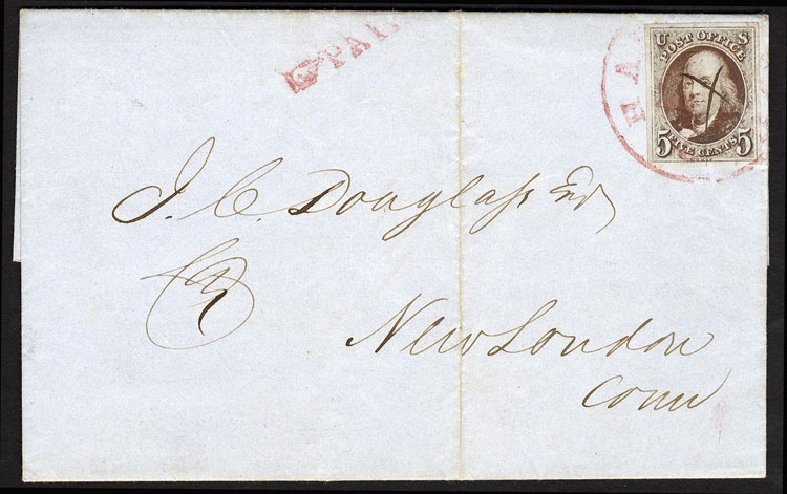 PAI
U S
POST OFFICE
HA
5 FIVE CENTS 5
J. C. Douglass Esq
New London
Conn